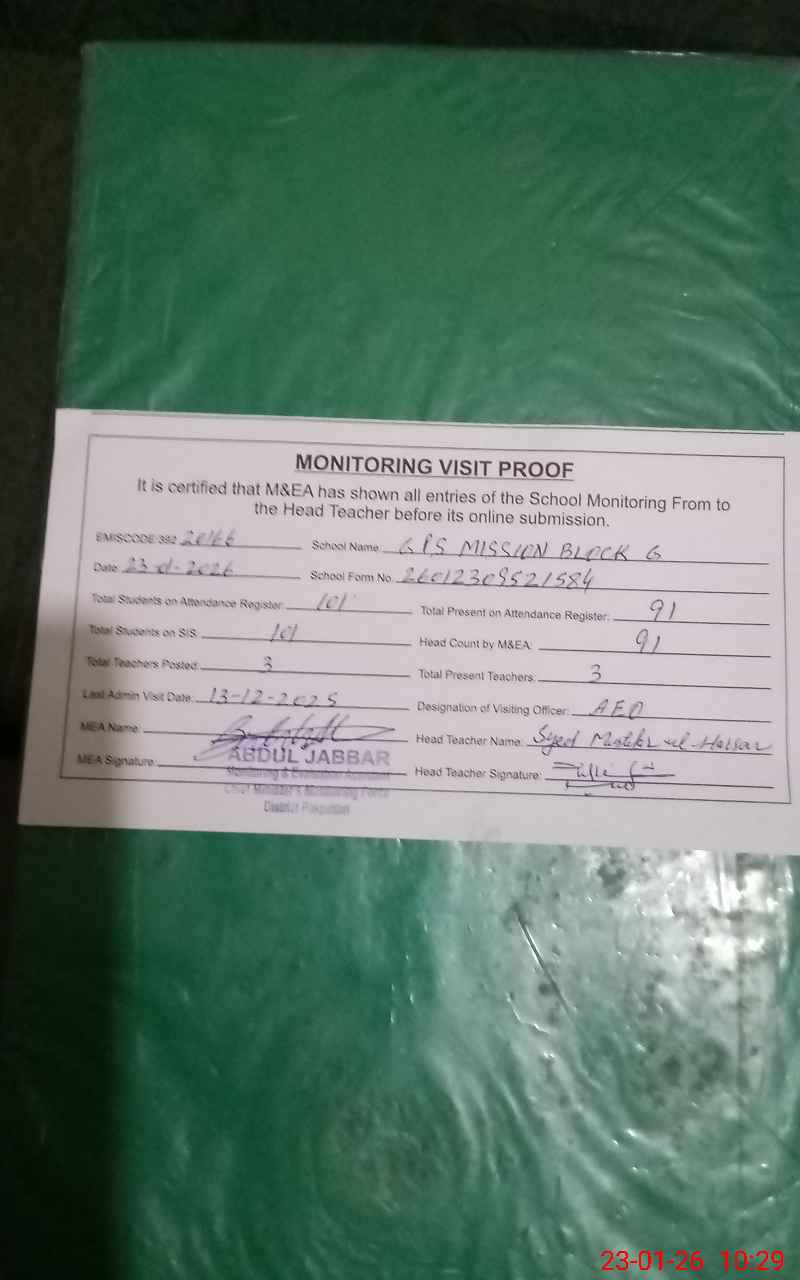 MONITORING VISIT PROOF
It is certified that M&EA has shown all entries of the School Monitoring From to
the Head Teacher before its online submission.
EMISCODE:392 20166 School Name: GPS MISSION BLOCK G
Date: 23-01-2026 School Form No. 26012309521584
Total Students on Attendance Register: 101 Total Present on Attendance Register: 91
Total Students on SIS: 101 Head Count by M&EA: 91
Total Teachers Posted: 3 Total Present Teachers: 3
Last Admin Visit Date: 13-12-2025 Designation of Visiting Officer: AEO
MEA Name: Head Teacher Name: Syed ul-Hassan
ABDUL JABBAR
MEA Signature: Head Teacher Signature:
Monitoring & Evaluation Assistant
Chief Minister's Monitoring Force
District Pakpattan
23-01-26 10:29